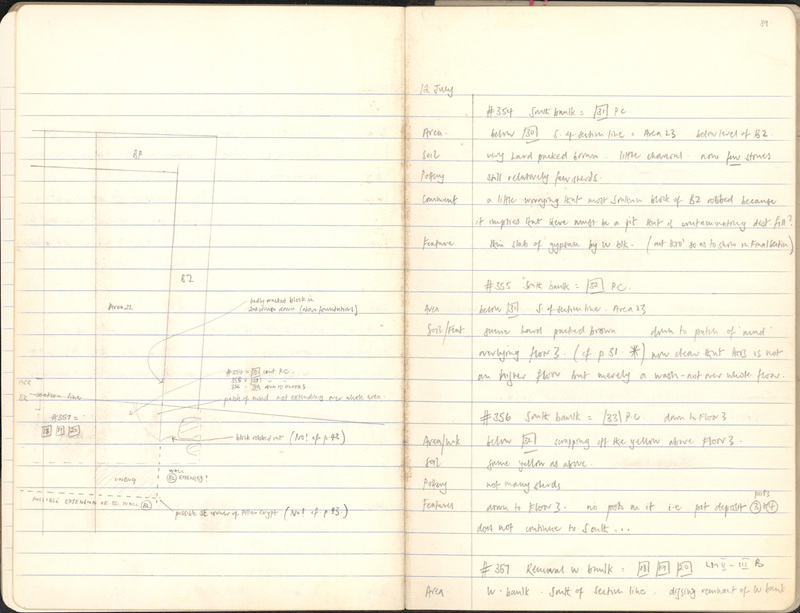 BP
BZ
Area 22
badly masked block in
2nd course down (above foundations)
#354 = 31 cont P.C.
355 = 32
356 = 33 down to floor 3
patch of mud not extending over whole area
section line
#357 =
18 19 20
block robbed out (No! cf p 43)
WALL
BZ EXTENDING?
POSSIBLE EXTENSION OF BZ WALL BZ
possible SE corner of Pillar Crypt (No! cf p 43)
39
12 July
#354 South baulk = 31 PC
Area. below 30 S. of section line = Area 23 below level of BZ
Soil very hard packed brown. little charcoal. now few stones
Pottery still relatively few sherds.
Comment a little worrying that most southern block of BZ robbed because
it implies that there must be a pit that is contaminating dest. fill?
Feature thin slab of gypsum by W blk. (not so as to show in Final Section)
#355 South baulk = 32 PC.
Area below 30 S. of section line. Area 23
Soil/Feat same hard packed brown down to patch of 'mud'
overlying floor 3. (cf p 31 *) now clear that this is not
an higher floor but merely a wash - not over whole floor.
#356 South baulk = 33 PC down to Floor 3
Area/wk below 32 scrapping off the yellow above Floor 3.
Soil same yellow as above.
Pottery not many sherds
Features down to Floor 3. no pots on it i.e. pot deposit 3 + 4
does not continue to South ...
#357 Removal W baulk = 18 19 20 LM II - III B
Area W. baulk. South of Section line. digging remnant of W baulk